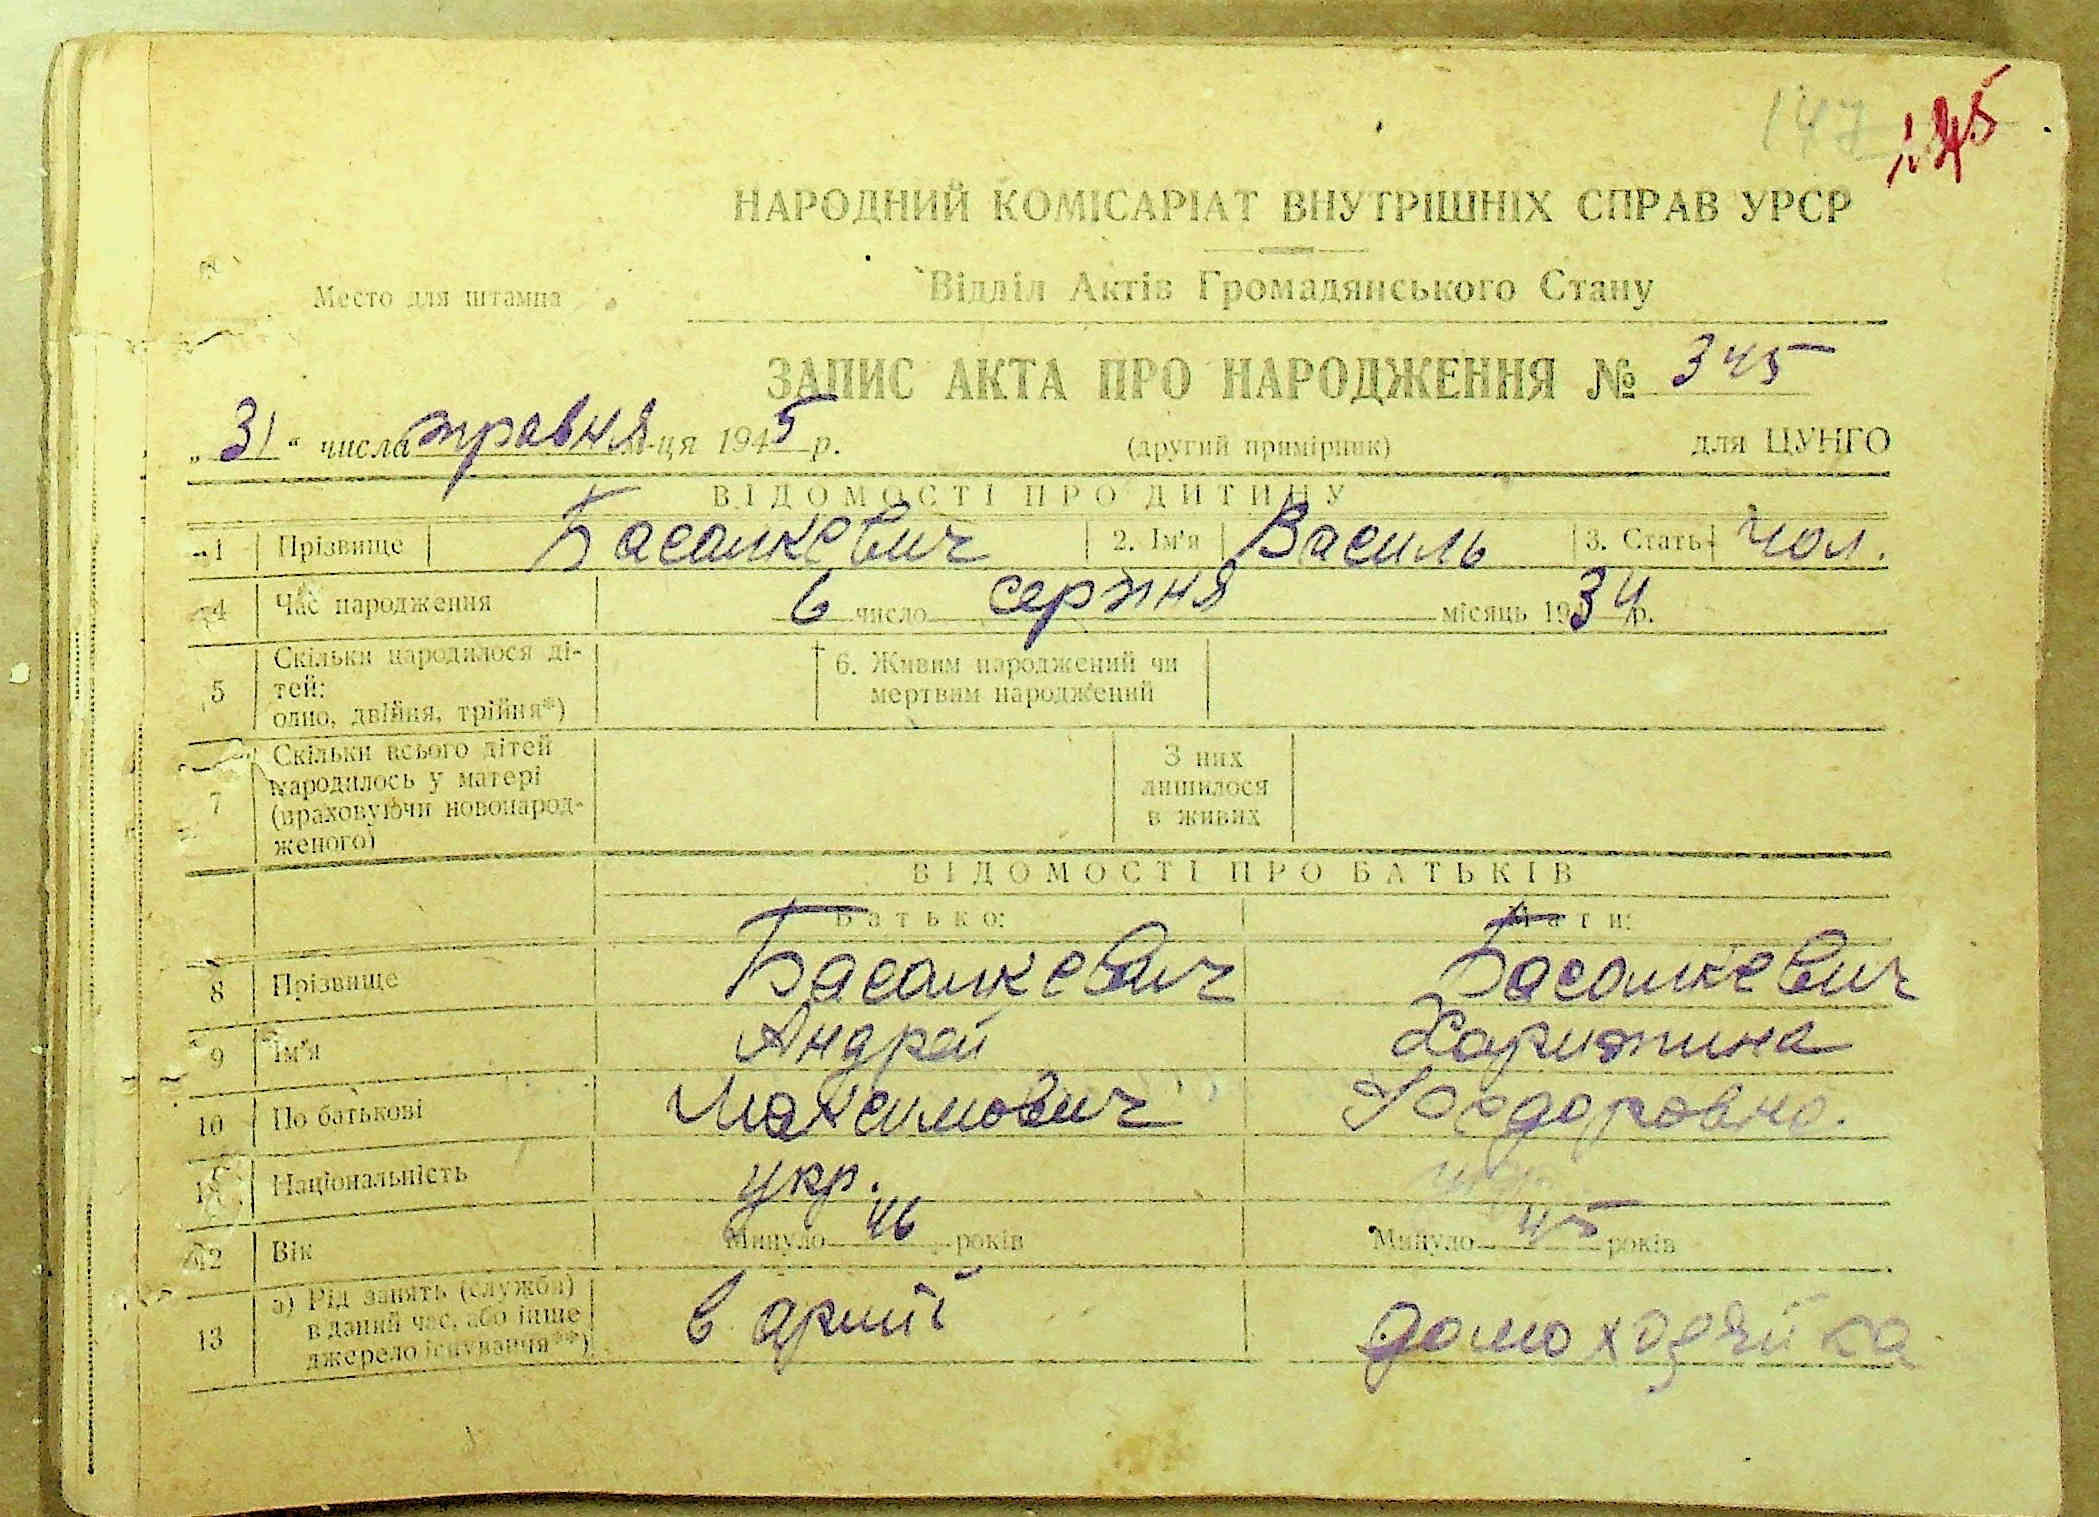 147 145
НАРОДНИЙ КОМІСАРІАТ ВНУТРІШНІХ СПРАВ УРСР
Место для штампа
Відділ Актів Громадянського Стану
ЗАПИС АКТА ПРО НАРОДЖЕННЯ № 345
„ 31 “ числа травня м-ця 1945 р. (другий примірник) для ЦУНГО
ВІДОМОСТІ ПРО ДИТИНУ
1 Прізвище Басанкевич 2. Ім'я Василь 3. Стать чол.
4 Час народження 6 число серпня місяць 1934 р.
5 Скільки народилося ді-
тей:
одно, двійня, трійня*)
6. Живим народжений чи
мертвим народжений
7 Скільки всього дітей
народилось у матері
(враховуючи новонарод-
женого)
З них
лишилося
в живих
ВІДОМОСТІ ПРО БАТЬКІВ
Батько: Мати:
8 Прізвище Басанкевич Басанкевич
9 Ім'я Андрей Харитина
10 По батькові Максимович Феодоровна.
11 Національність укр. укр.
12 Вік Минуло 46 років Минуло 45 років
13 а) Рід занять (служби)
в даний час, або інше
джерело існування**)
в армії домохозяйка